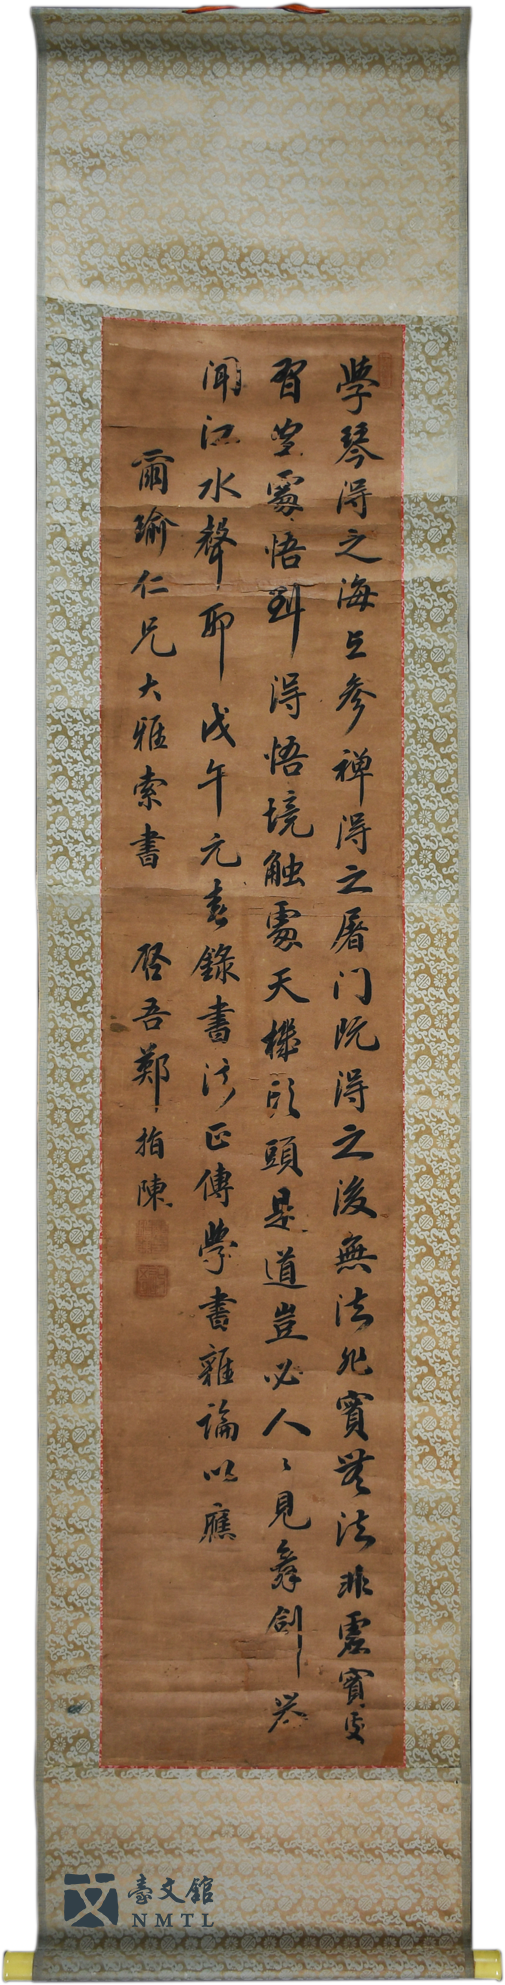 學琴得之海上參禅得之屠门既得之後無法非實無法非虛實處
習空處悟到得悟境触處天機頭頭是道豈必人々見舞劍器
聞江水聲耶 戊午元春錄書法正傳學書雜論以應
爾瑜仁兄大雅索書 啓吾鄭指陳
臺文館
NMTL